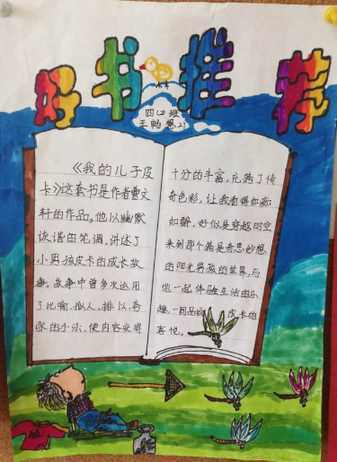 好书推荐
四(2)班
王
《我的儿子皮
卡》这套书是作者曹文
轩的作品。他以幽默
诙谐的笔调，讲述了
小男孩皮卡的成长故
事。故事中曾多次运用
了比喻、拟人、排比、夸
张的手法，使内容变得
十分的丰富，充满了传
奇色彩，让我看得如痴
如醉，好似是穿越时空
来到那个满是奇思妙想
的阳光男孩的世界，与
他一起体验生活的乐
趣，一同品 皮卡的
喜悦。